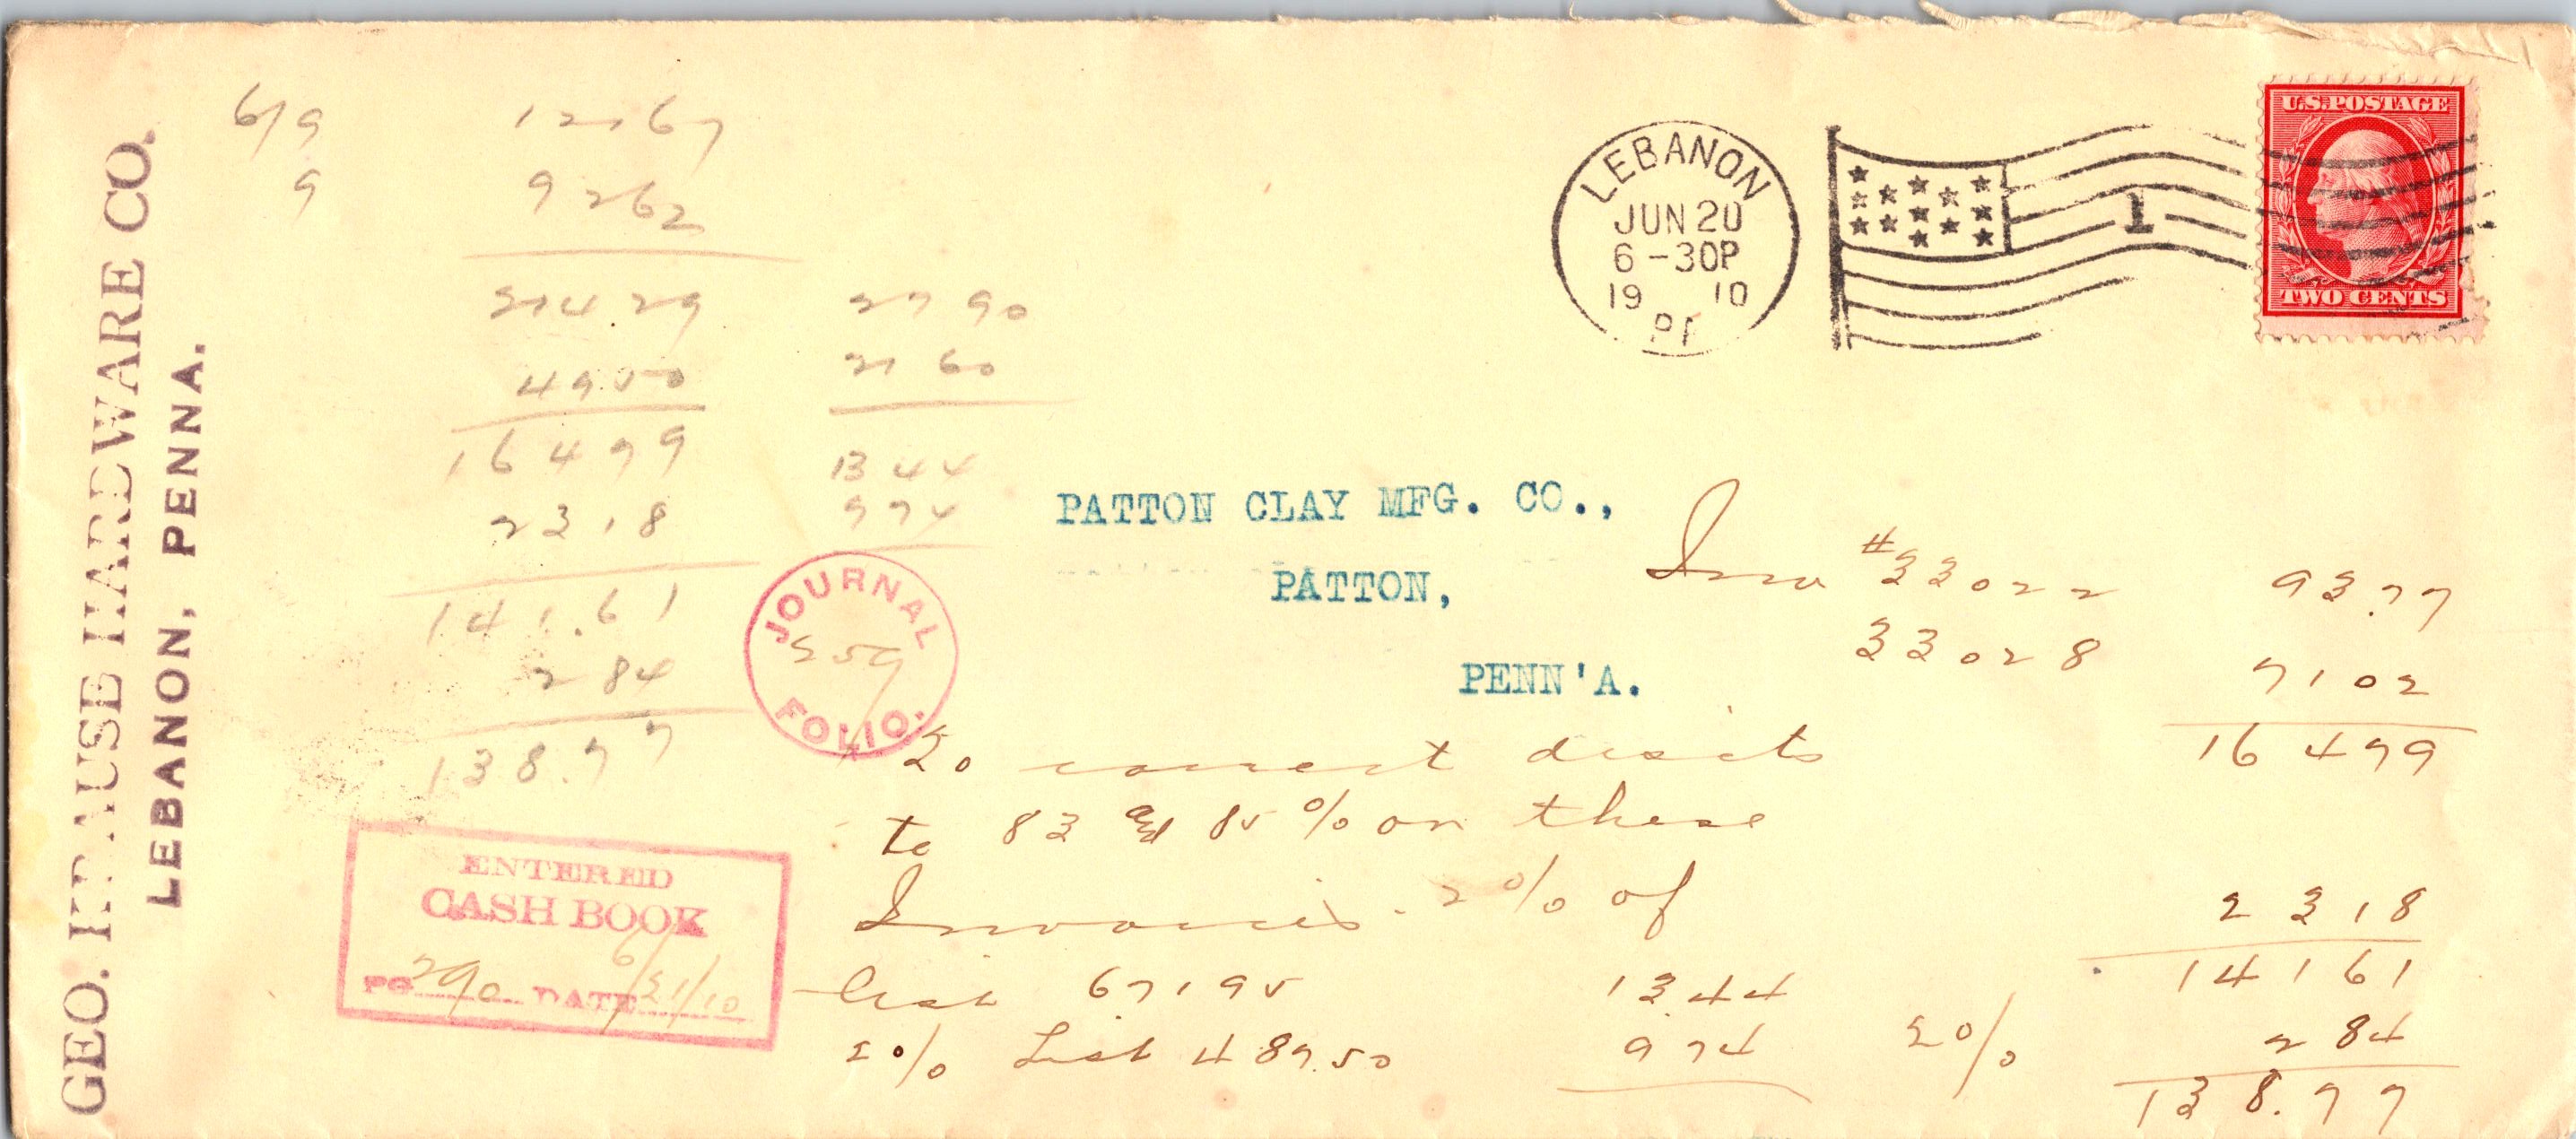 GEO. KRAUSE HARDWARE CO.
LEBANON, PENNA.
6/9
9
12167
9262
21429
4950
16479
2318
141.61
284
138.77
2790
2160
1344
974
LEBANON
JUN 20
6-30P
1910
PA
1
U.S. POSTAGE
TWO CENTS
PATTON CLAY MFG. CO.,
PATTON,
PENN'A.
JOURNAL
259
FOLIO.
ENTERED
CASH BOOK
PG 290 DATE 6/21/10
Inv #33022 93.77
33028 7102
16479
To correct discts
to 83 and 85% on these
Invoices. 2% of 2318
List 67195 1344 14161
2% List 487.50 974 2% 284
138.77